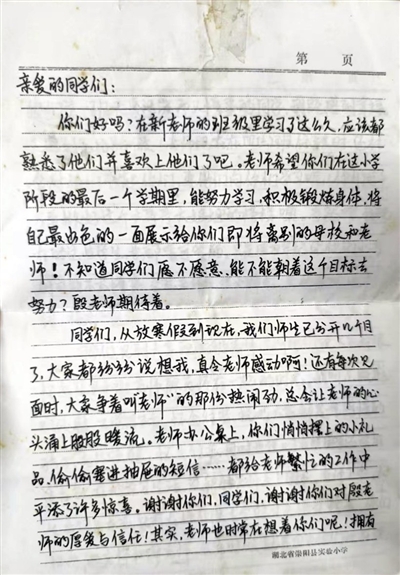 第 页
亲爱的同学们：
你们好吗？在新老师的班级里学习了这么久，应该都
熟悉了他们并喜欢上他们了吧。老师希望你们在这小学
阶段的最后一个学期里，能努力学习，积极锻炼身体，将
自己最出色的一面展示给你们即将离别的母校和老
师！不知道同学们愿不愿意、能不能朝着这个目标去
努力？殷老师期待着。
同学们，从放寒假到现在，我们师生已分开几个月
了，大家都纷纷说想我，真令老师感动啊！还有每次见
面时，大家争着叫“老师”的那份热闹劲，总会让老师的心
头涌上股股暖流。老师办公桌上，你们悄悄摆上的小礼
品，偷偷塞进抽屉的短信……都给老师繁忙的工作中
平添了许多惊喜。谢谢你们，同学们，谢谢你们对殷老
师的厚爱与信任！其实，老师也时常在想着你们呢！拥有
湖北省崇阳县实验小学